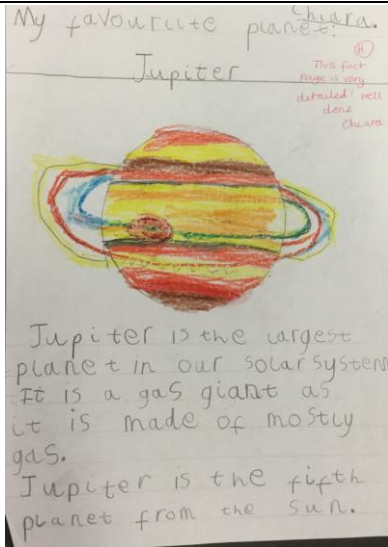 Chiara.
My favourite planet:
Jupiter
H
This fact
Page is very
detailed! well
done
Chiara
Jupiter is the largest
planet in our solar system
It is a gas giant as
it is made of mostly
gas.
Jupiter is the fifth
planet from the Sun.